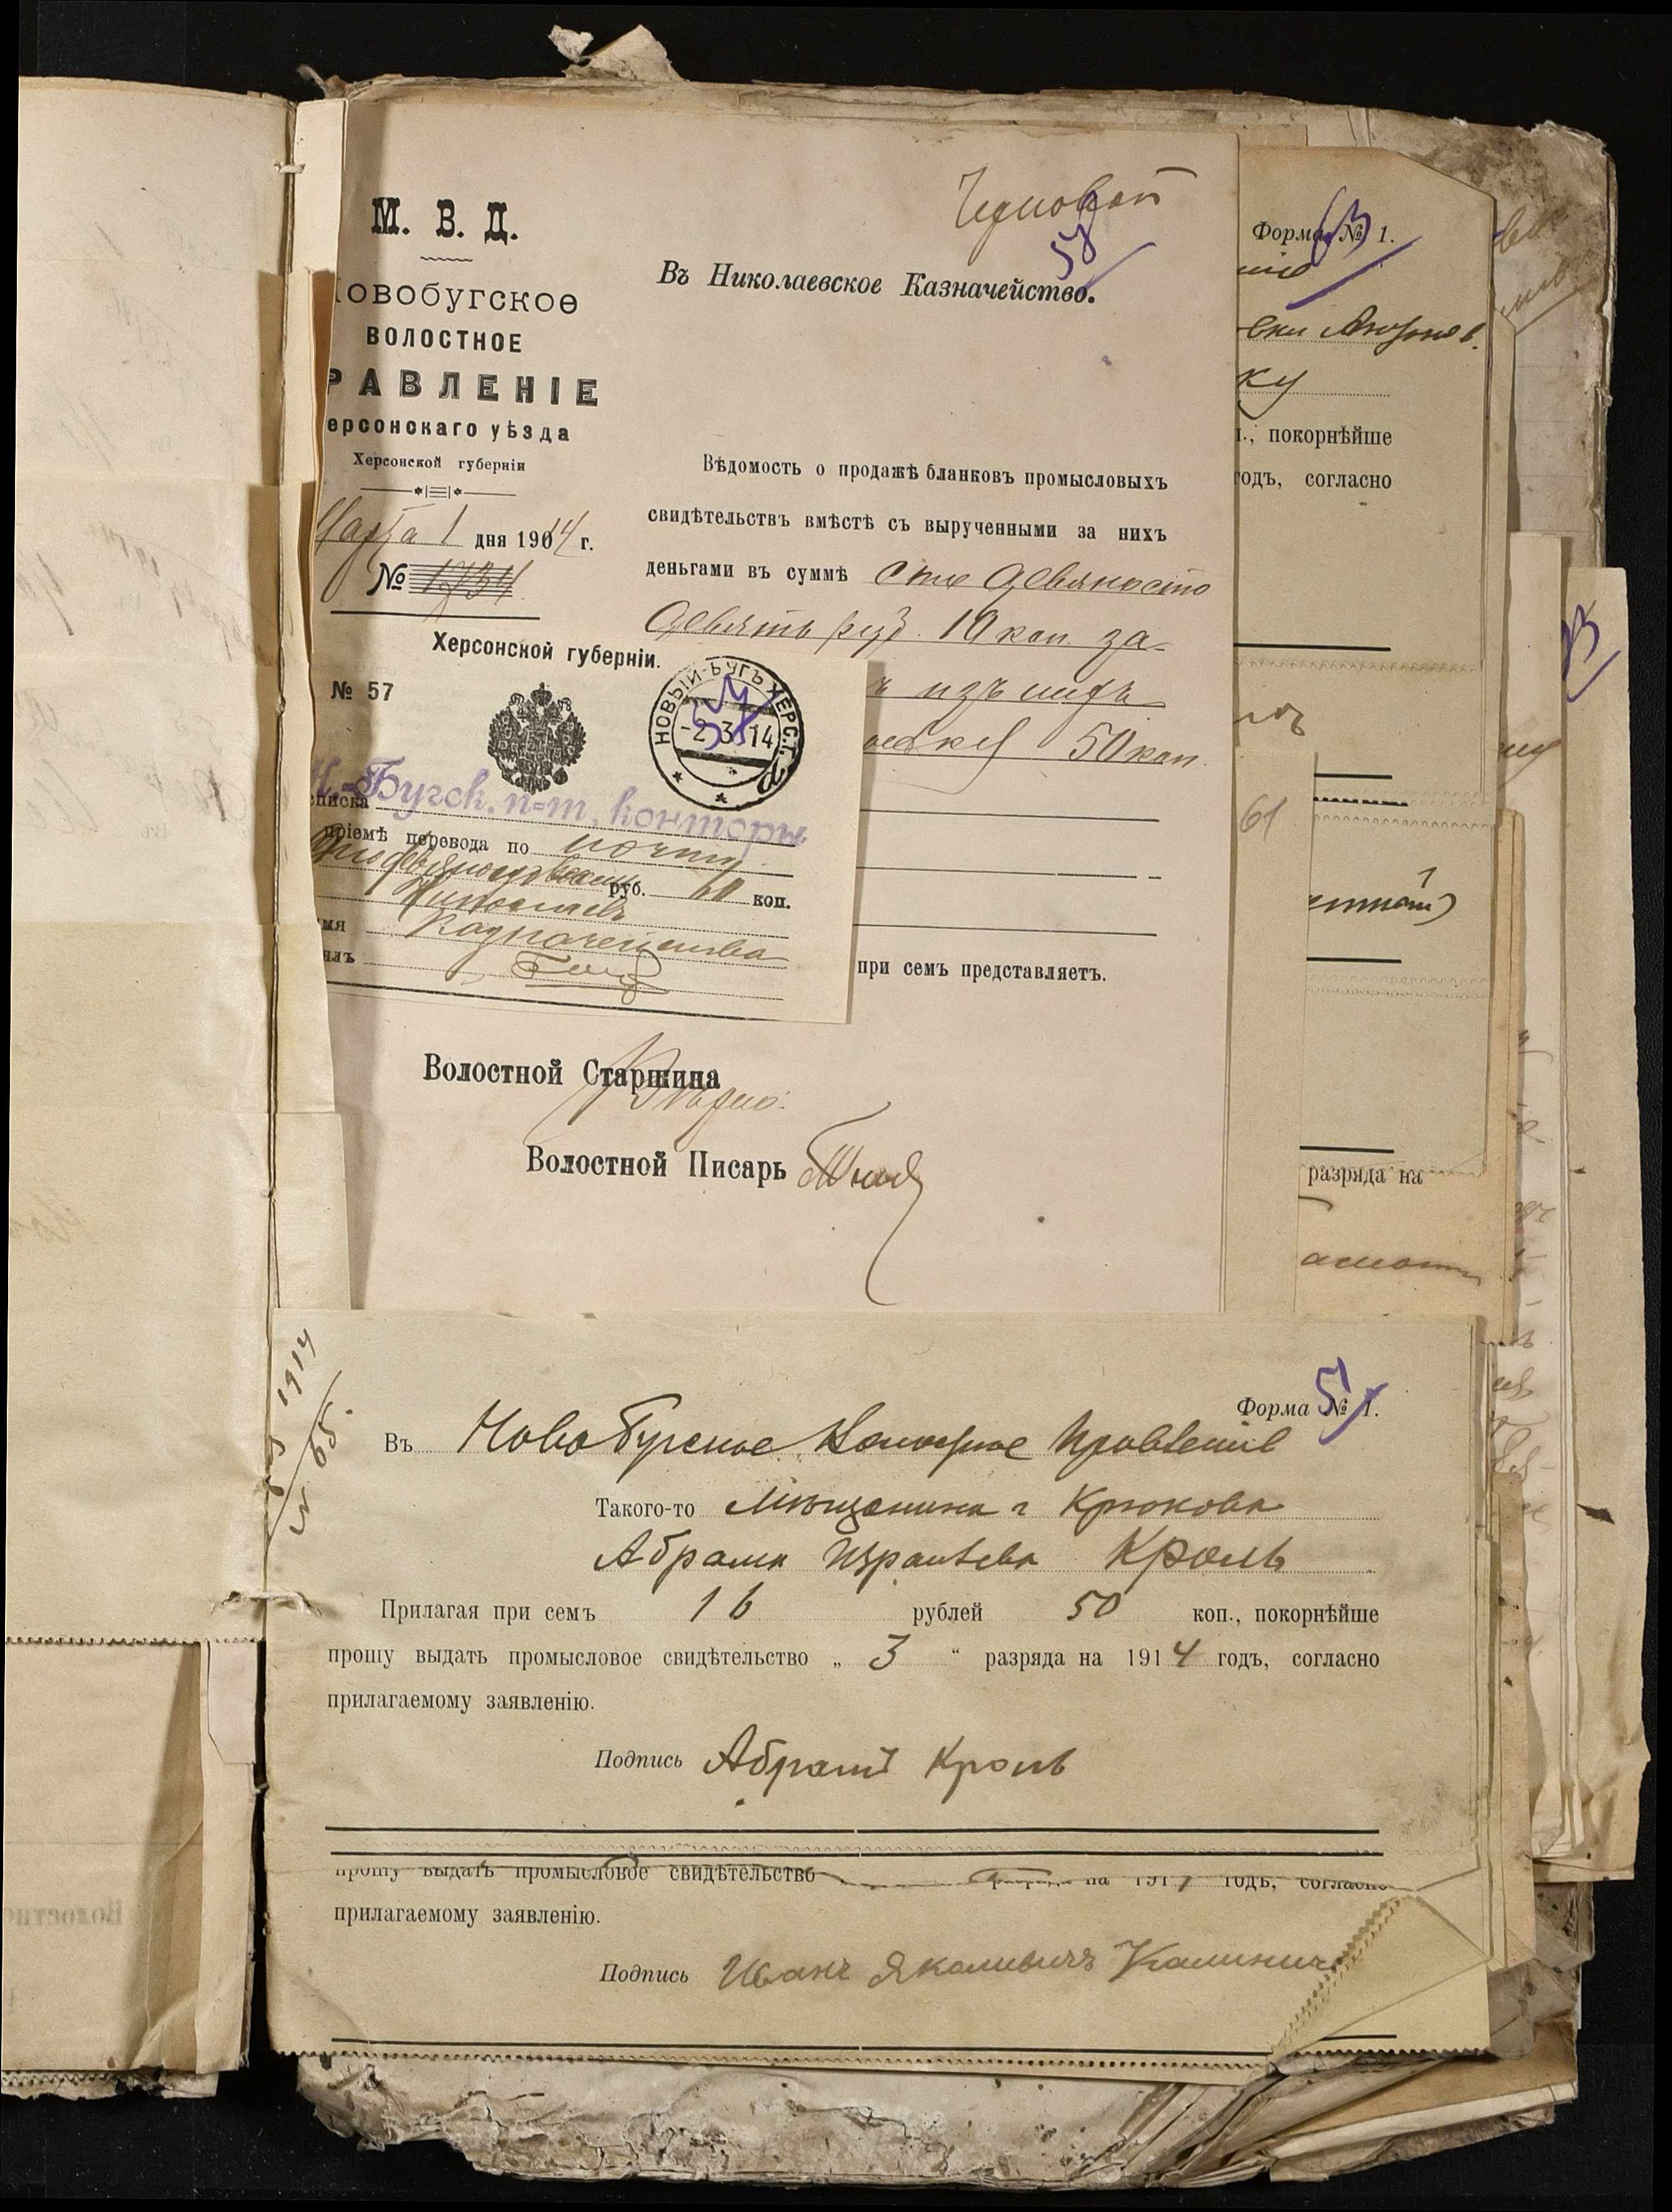 Черновой
58
М. В. Д.
Новобугское
ВОЛОСТНОЕ
РАВЛЕНІЕ
ерсонскаго уѣзда
Херсонской губерніи
Марта 1 дня 1904 г.
№ 1734
Въ Николаевское Казначейство.
Вѣдомость о продажѣ бланковъ промысловыхъ
свидѣтельствъ вмѣстѣ съ вырученными за нихъ
деньгами въ суммѣ сто девяносто
девять руб. 10 коп. за
ъ изъ нихъ
50 коп.
при семъ представляетъ.
Херсонской губерніи.
№ 57
НОВЫЙ-БУГЪ ХЕРС. Г.
-2.3.14
Н.-Бугск. п-т. конторы
списка
пріемѣ перевода по почтѣ
руб. 60 коп.
Николаев
мя Казначейства
ялъ
Волостной Старшина
Волостной Писарь
Форма № 1.
63
ку
п., покорнѣйше
годъ, согласно
61
разряда на
1914
№ 65.
Форма № 1.
Въ Новобугское Волостное Правленіе
Такого-то Мѣщанина г Крюкова
Абрама Израилева Кроль
Прилагая при семъ 16 рублей 50 коп., покорнѣйше
прошу выдать промысловое свидѣтельство „ 3 “ разряда на 1914 годъ, согласно
прилагаемому заявленію.
Подпись Абрамъ Кроль
прошу выдать промысловое свидѣтельство на 191 годъ, согласно
прилагаемому заявленію.
Подпись Иванъ Якалывичъ Калинич